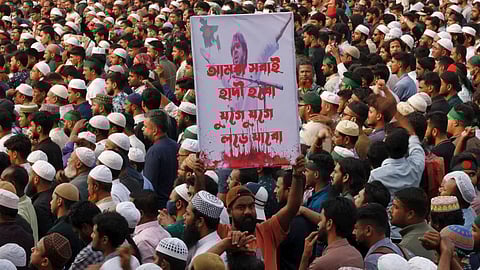 আমরা সবাই
হাদী হবো
যুগে যুগে
লড়ে যাবো